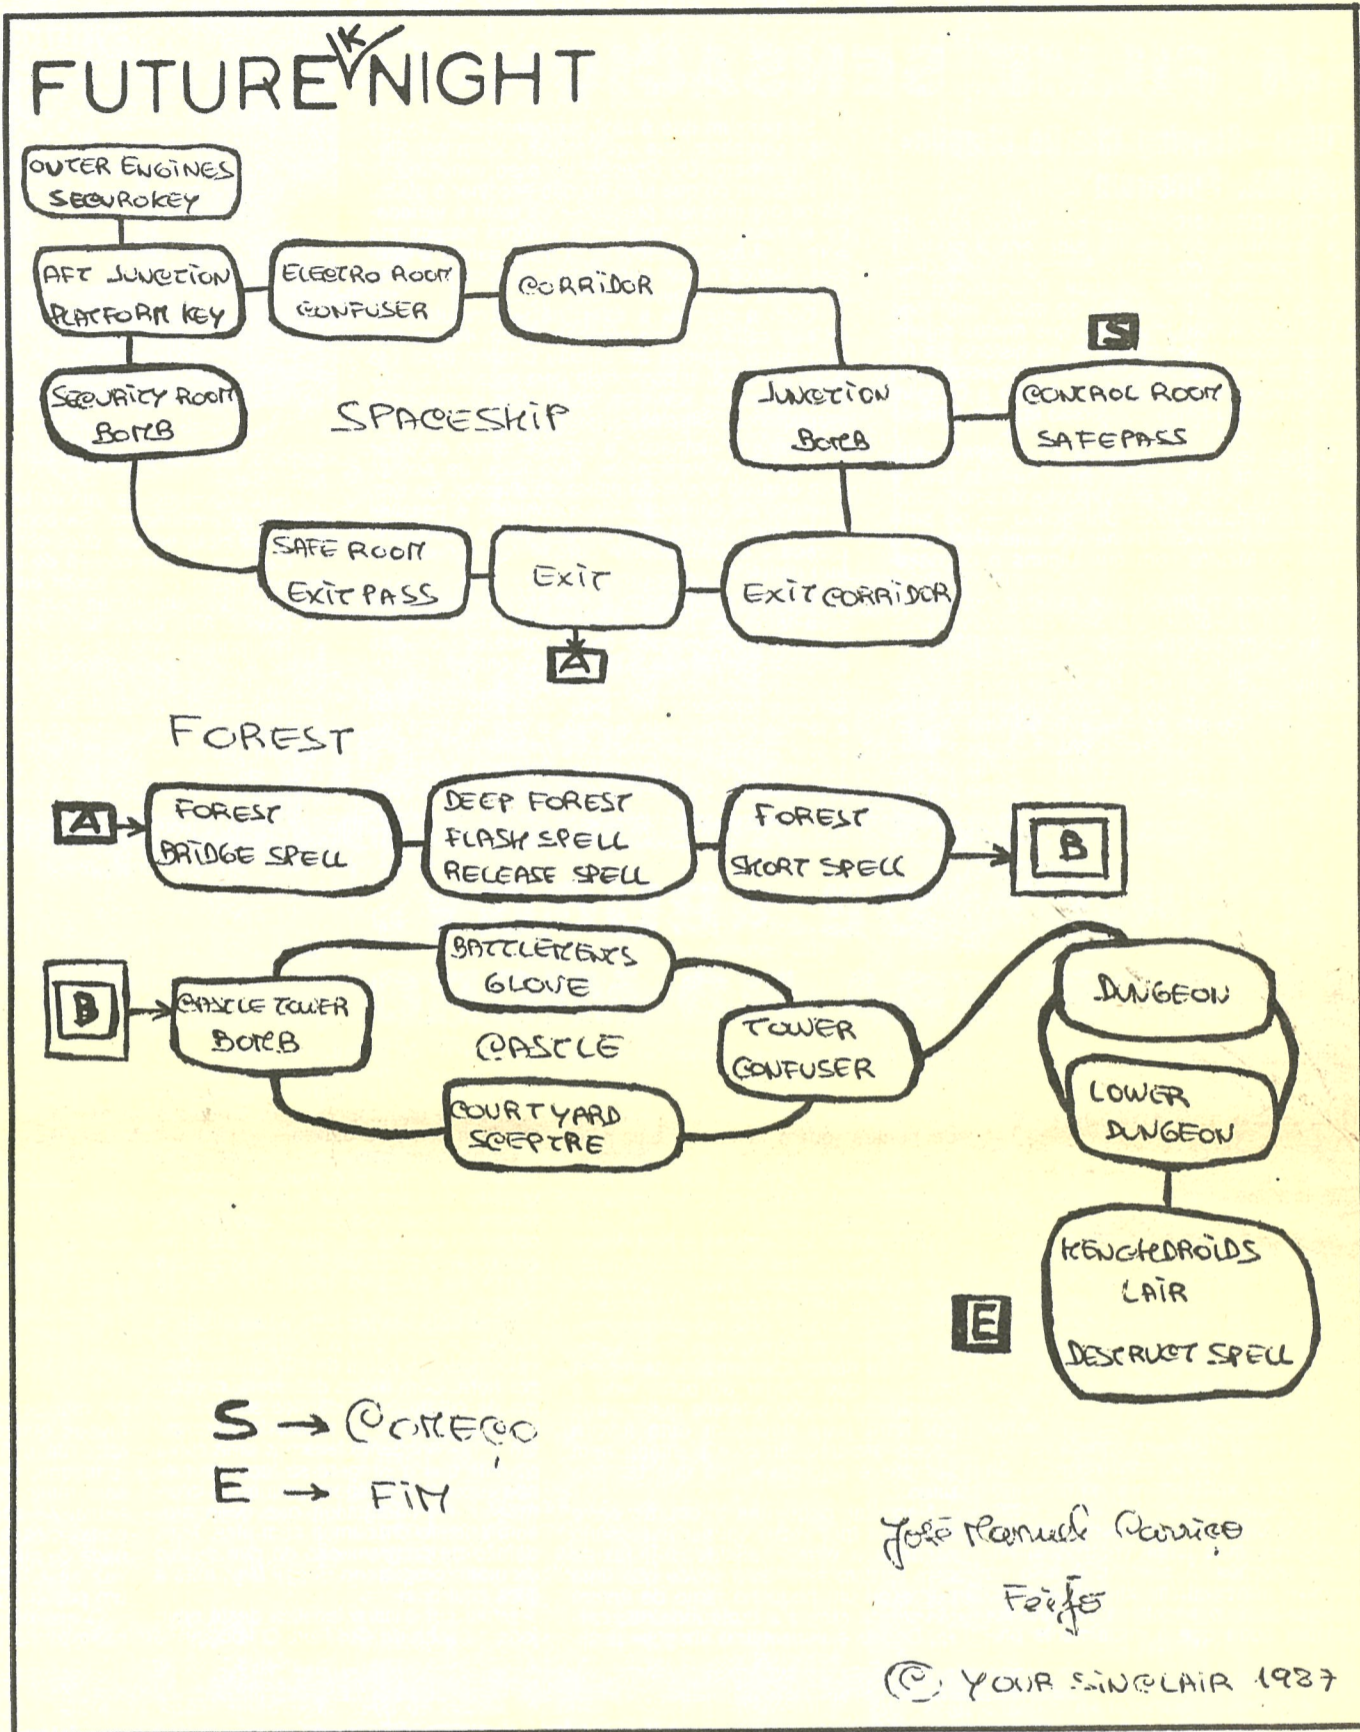 FUTURE KNIGHT
OUTER ENGINES
SECUROKEY
AFT JUNCTION
PLATFORM KEY
ELECTRO ROOM
CONFUSER
CORRIDOR
S
SECURITY ROOM
BOMB
SPACESHIP
JUNCTION
BOMB
CONTROL ROOM
SAFEPASS
SAFE ROOM
EXIT PASS
EXIT
EXIT CORRIDOR
A
FOREST
A
FOREST
BRIDGE SPELL
DEEP FOREST
FLASH SPELL
RELEASE SPELL
FOREST
SHORT SPELL
B
B
CASTLE TOWER
BOMB
BATTLEMENTS
GLOVE
CASTLE
COURTYARD
SCEPTRE
TOWER
CONFUSER
DUNGEON
LOWER
DUNGEON
HENCHDROIDS
LAIR
DESTRUCT SPELL
E
S → COMEÇO
E → FIM
José Manuel Carriço
© YOUR SINCLAIR 1987